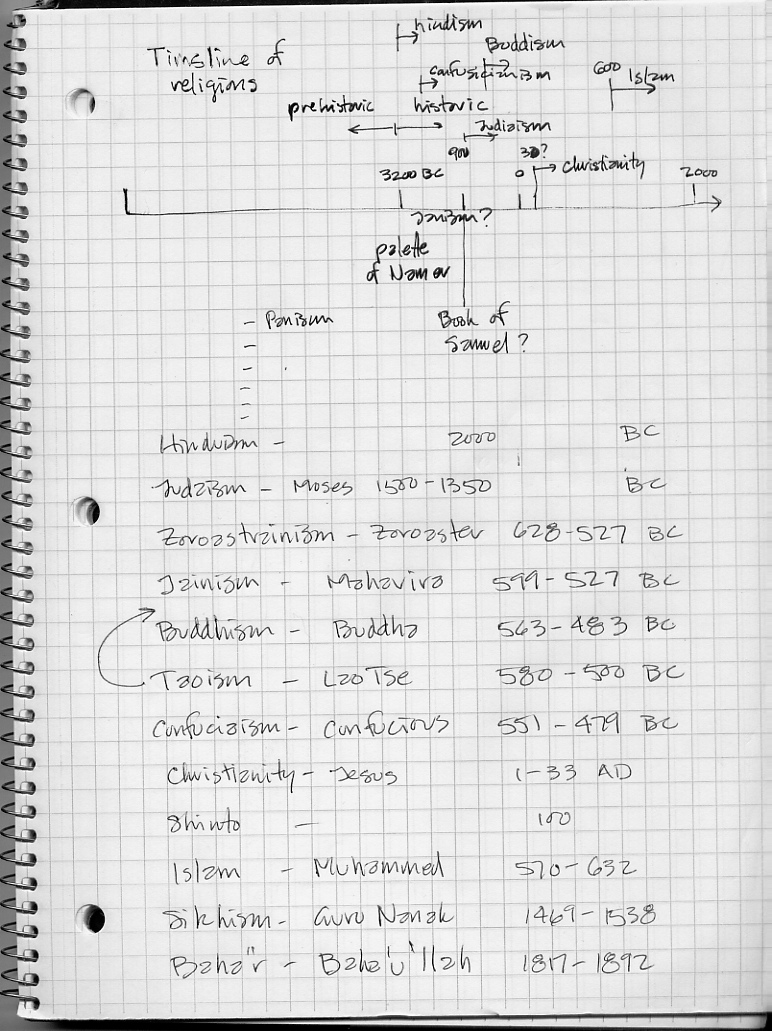 Timsline of
religions
hindism
Buddism
confusicianism
600 Islam
prehistoric
historic
Judaism
900
30?
3200 BC
0
Christianity
2000
Janism?
palette
of Namer
Book of
Samuel?
- Panism
-
-
-
-
-
Hinduism - 2000 BC
Judaism - Moses 1500-1350 BC
Zoroastrainism - Zoroaster 628-527 BC
Jainism - Mahavira 599-527 BC
Buddhism - Buddha 563-483 BC
Taoism - Lao Tse 580-500 BC
Confuciaism - Confucious 551-479 BC
Christianity - Jesus 1-33 AD
Shinto - 100
Islam - Muhammed 570-632
Sikhism - Guru Nanak 1469-1538
Baha'r - Baha'u'llah 1817-1892